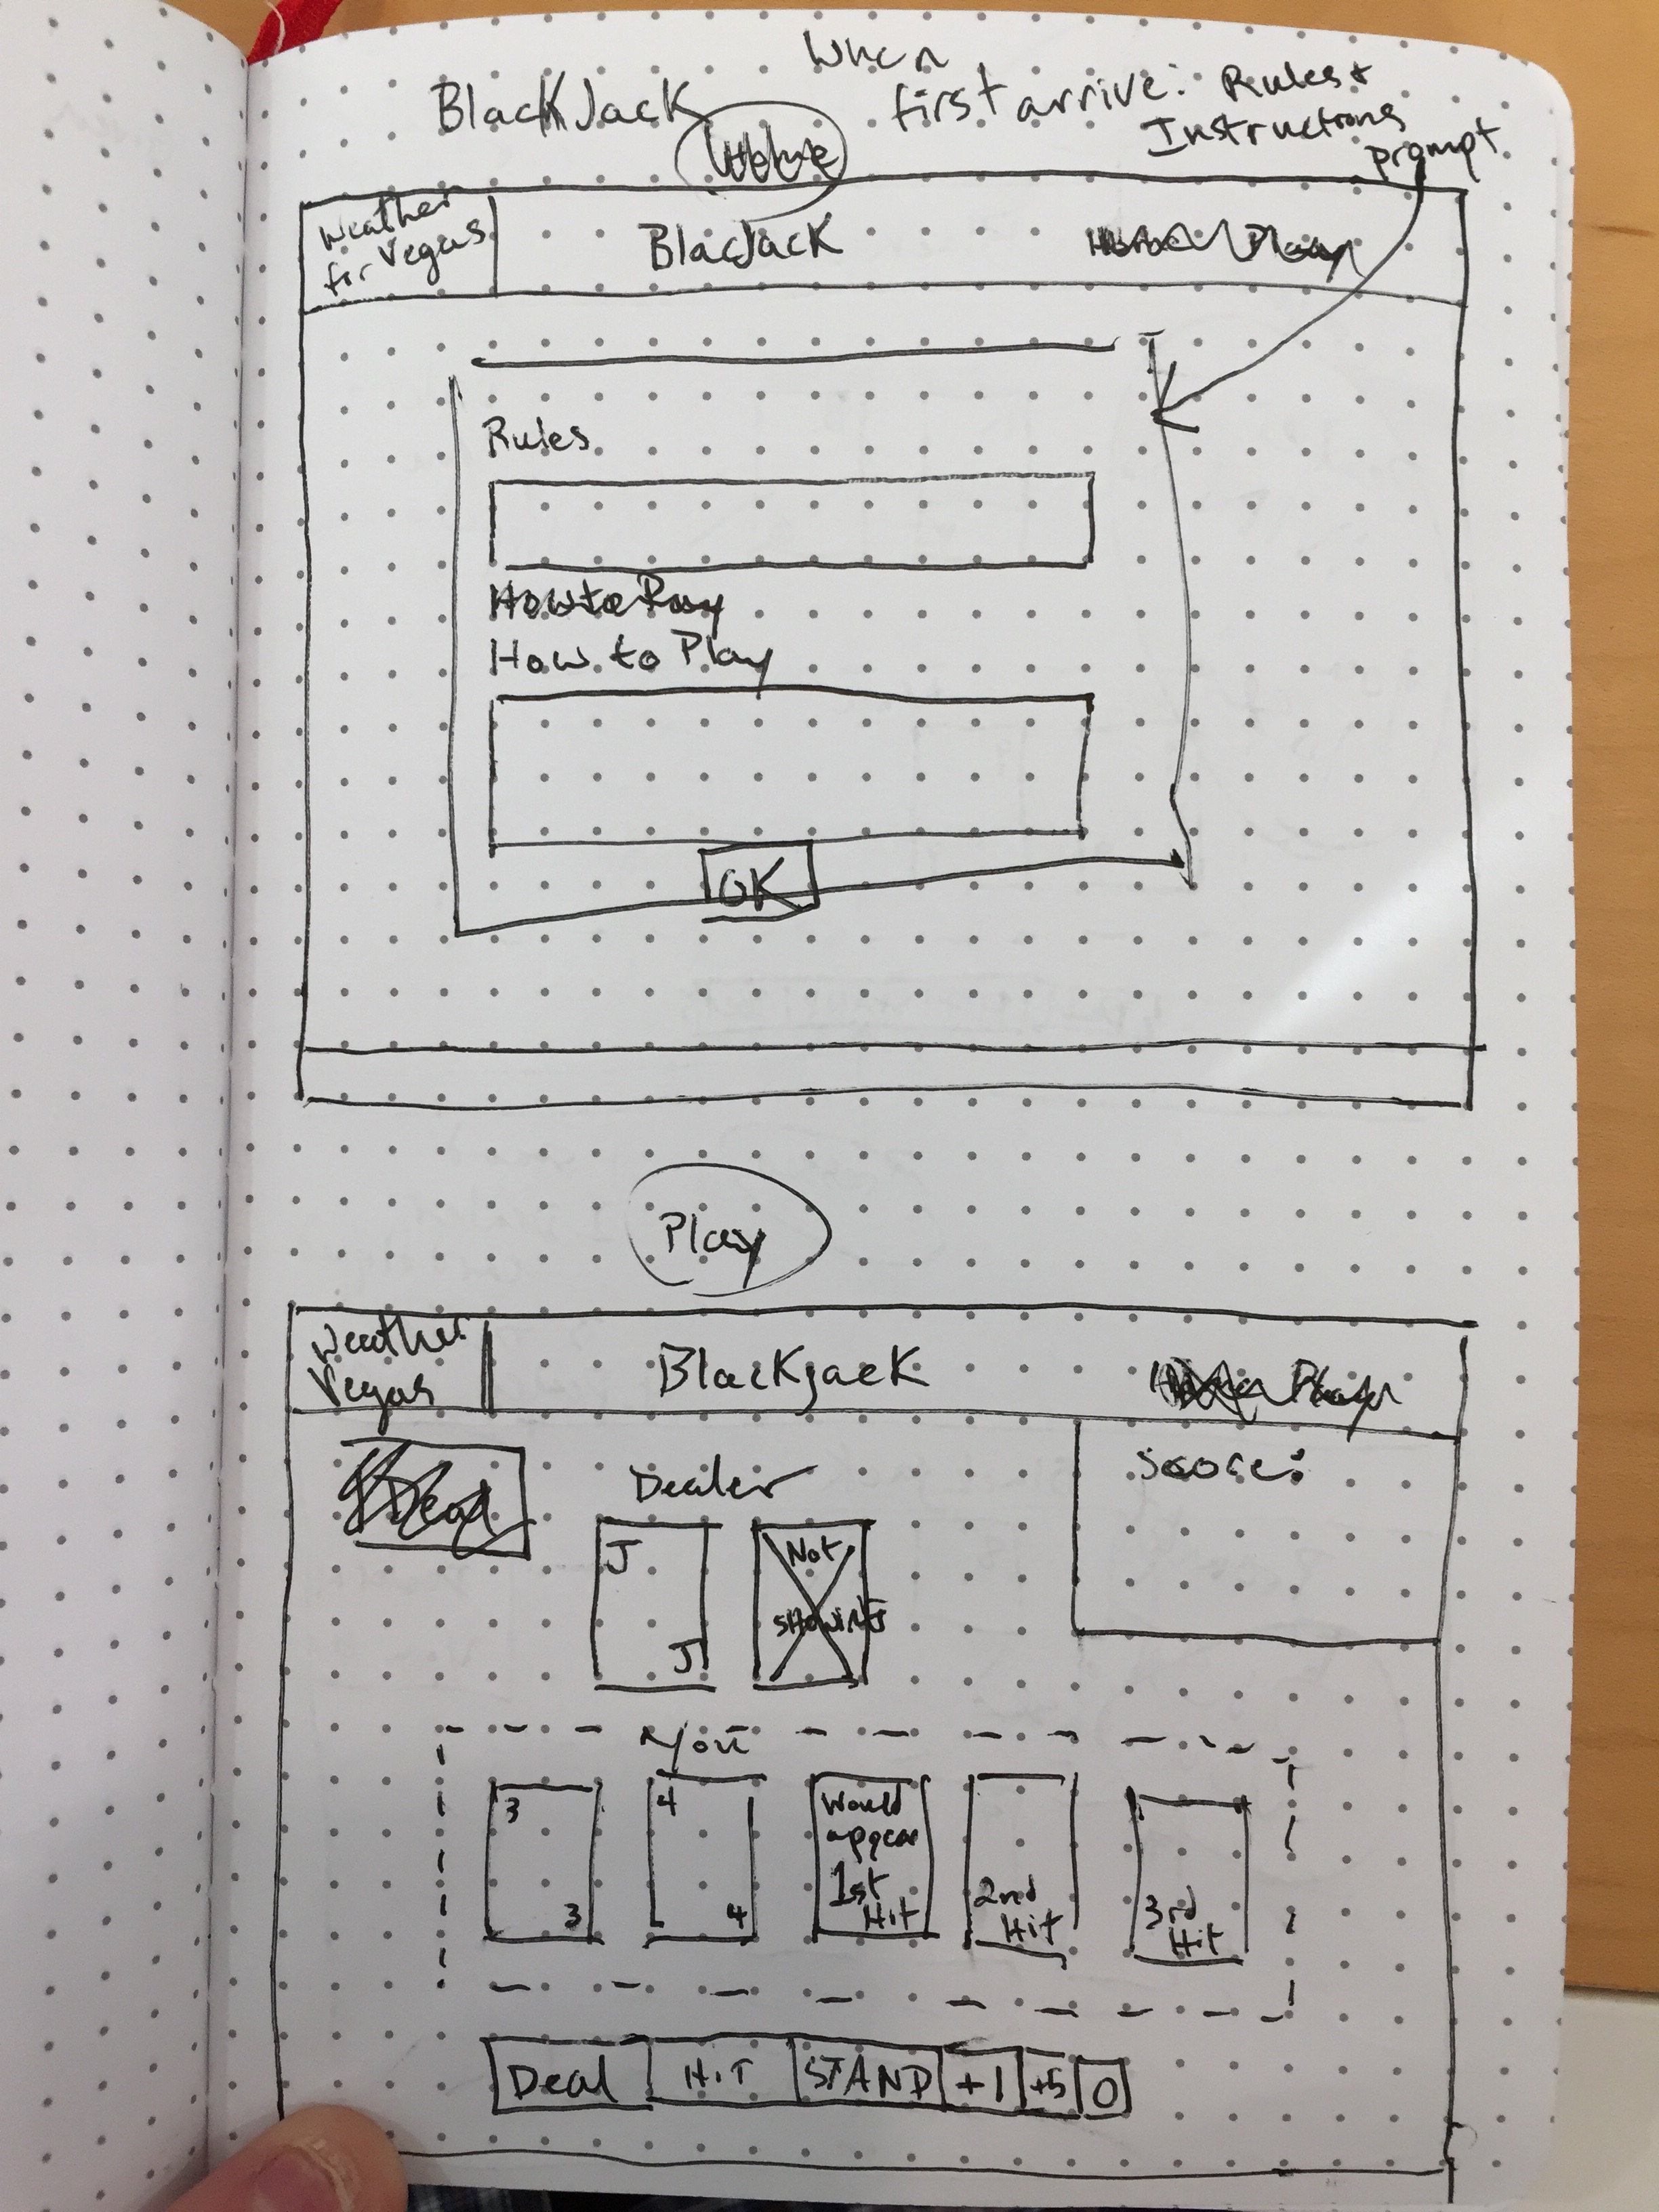 BlackJack
When
first arrive: Rules +
Instructions
prompt
Weather
for Vegas
BlacJack
Play
Rules
How to Play
How to Play
OK
Play
Weather
Vegas
Blackjack
Play
Dealer
Score:
J
J
Not
SHOWING
You
3
3
4
4
Would
appear
1st
Hit
2nd
Hit
3rd
Hit
Deal HIT STAND +1 +5 0